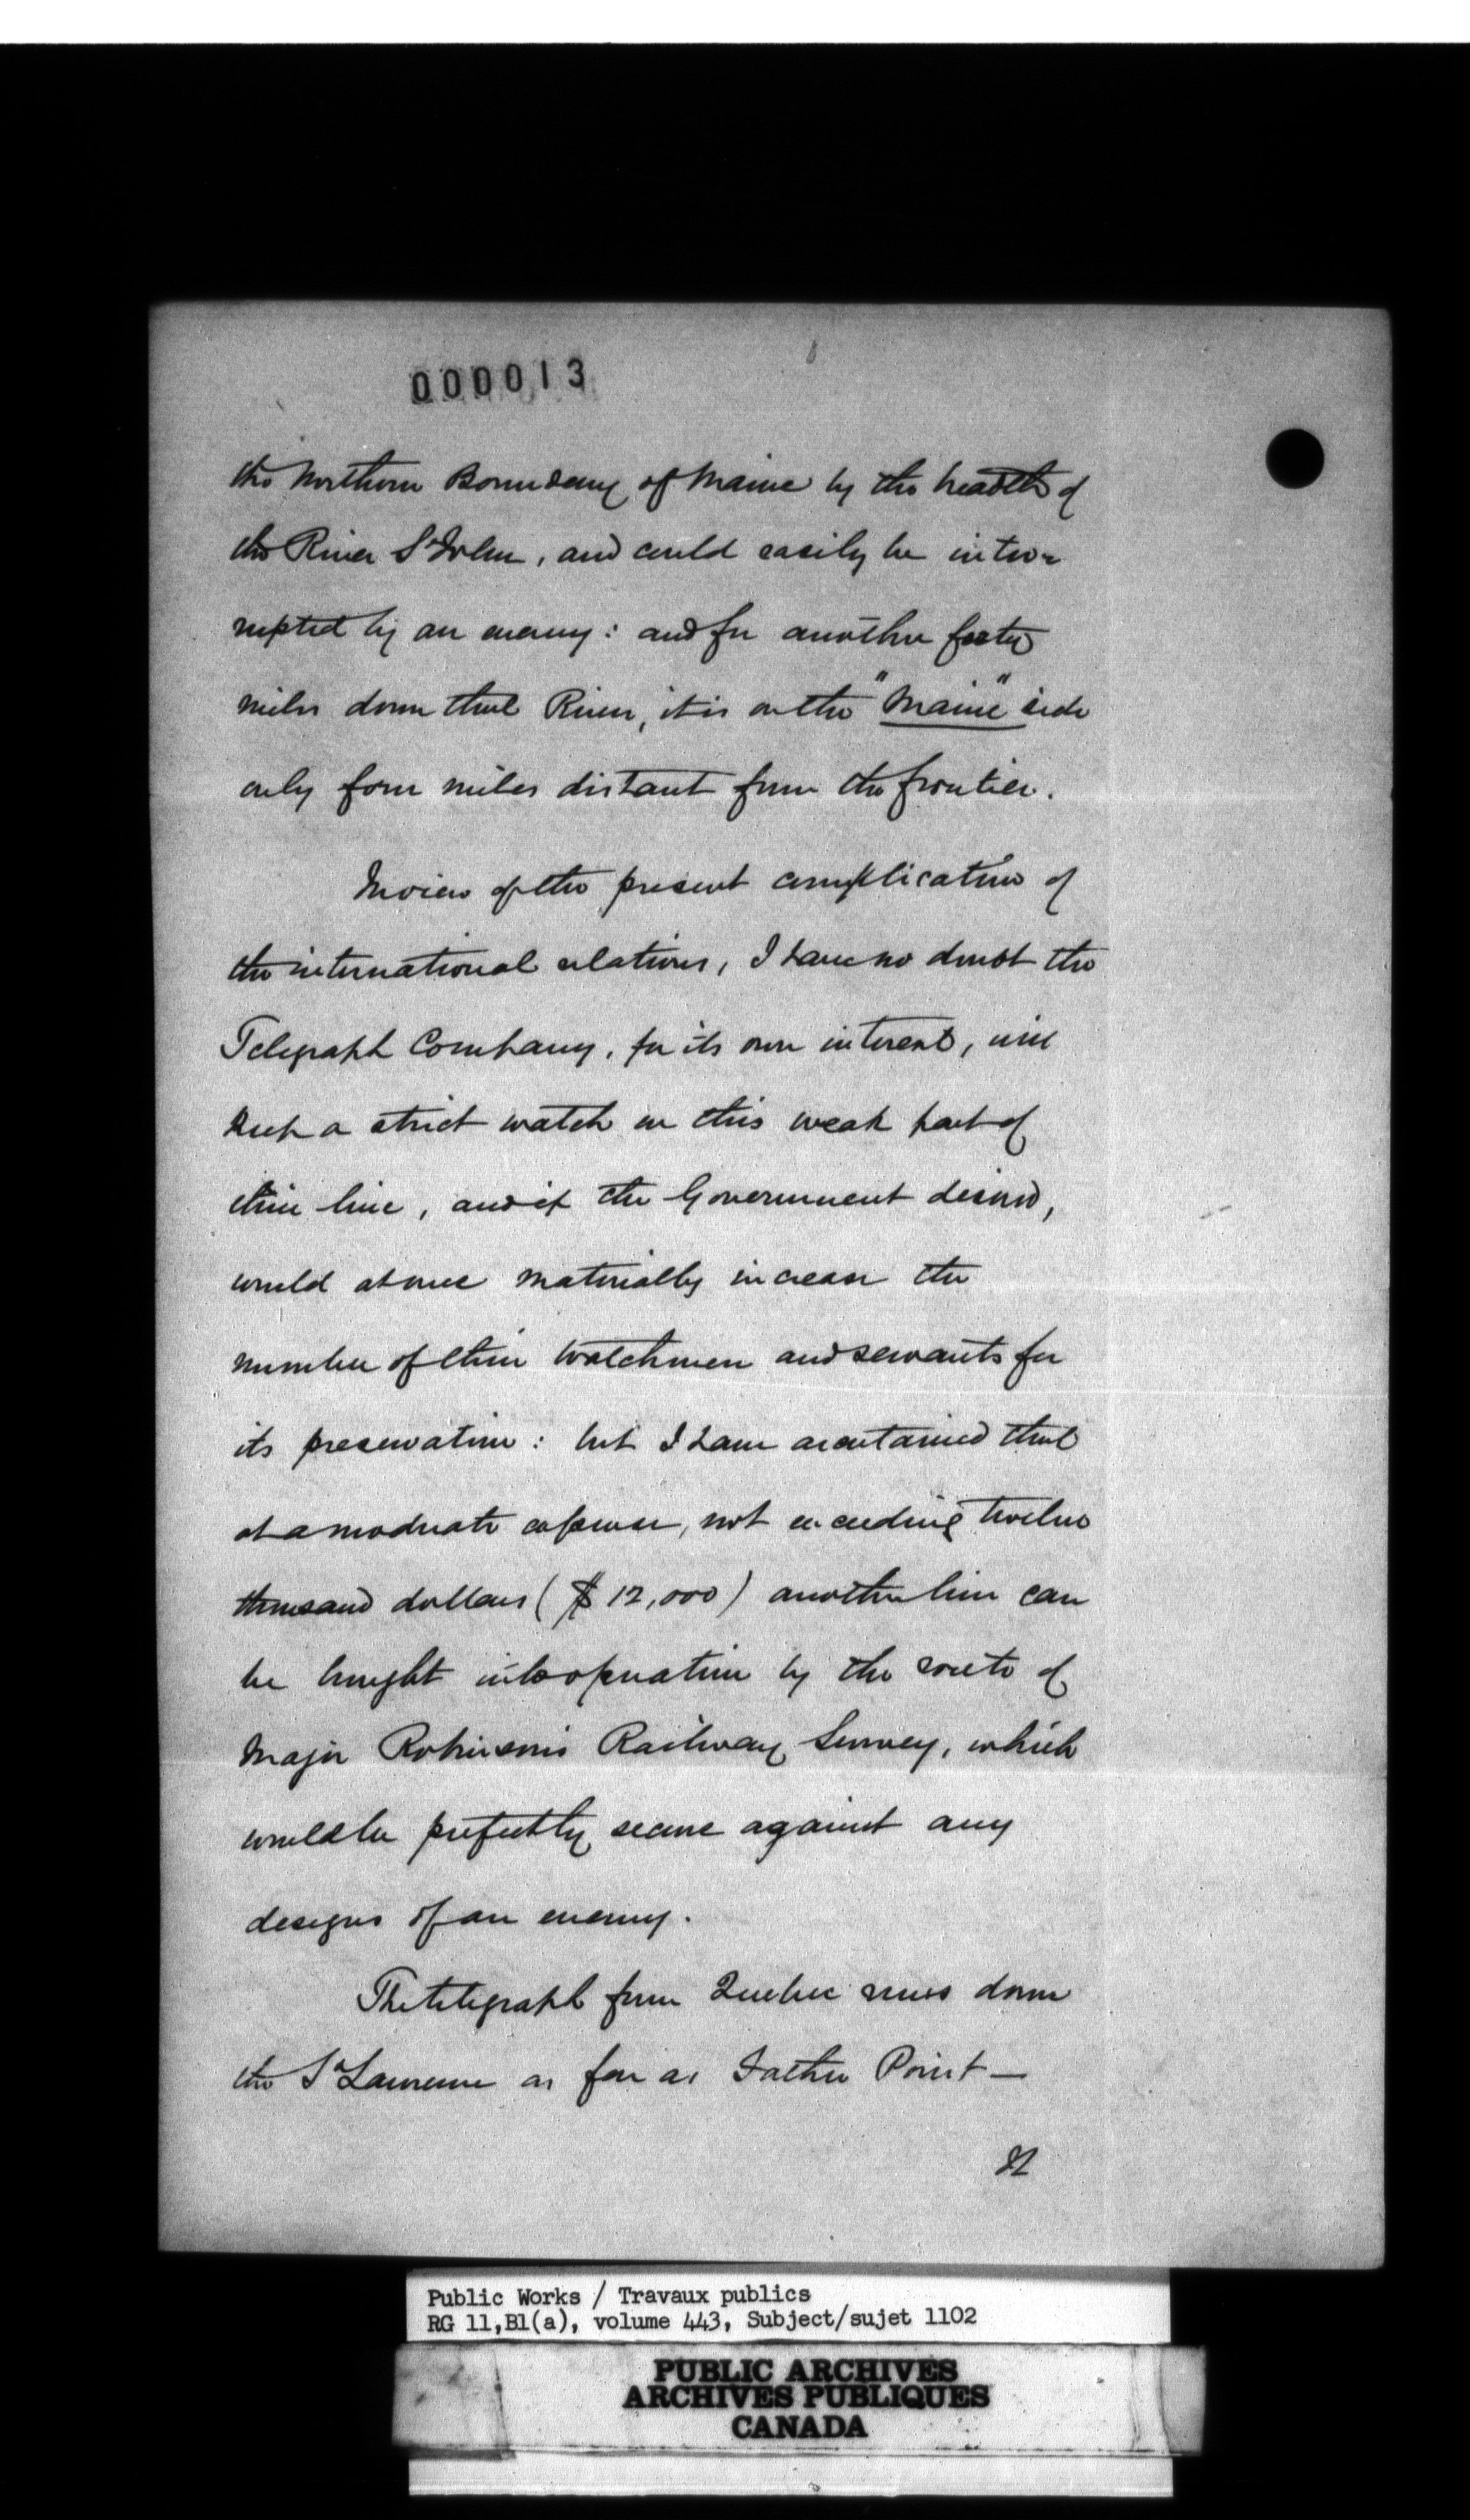 000013
the Northern Boundary of Maine by the breadth of
the River St John, and could easily be inter=
rupted by an enemy: and for another forty
miles down that River, it is on the "Maine" side
only four miles distant from the frontier.
In view of the present complication of
the international relations, I have no doubt the
Telegraph Company, for its own interest, will
keep a strict watch on this weak part of
their line, and if the Government desired,
would at once materially increase the
number of their Watchmen and servants for
its preservation: but I have ascertained that
at a moderate expense, not exceeding twelve
thousand dollars ($12,000) another line can
be brought into operation by the route of
Major Robinson's Railway Survey, which
would be perfectly secure against any
designs of an enemy.
The telegraph from Quebec runs down
the St Lawrence as far as Father Point —
Public Works / Travaux publics
RG 11,B1(a), volume 443, Subject/sujet 1102
PUBLIC ARCHIVES
ARCHIVES PUBLIQUES
CANADA